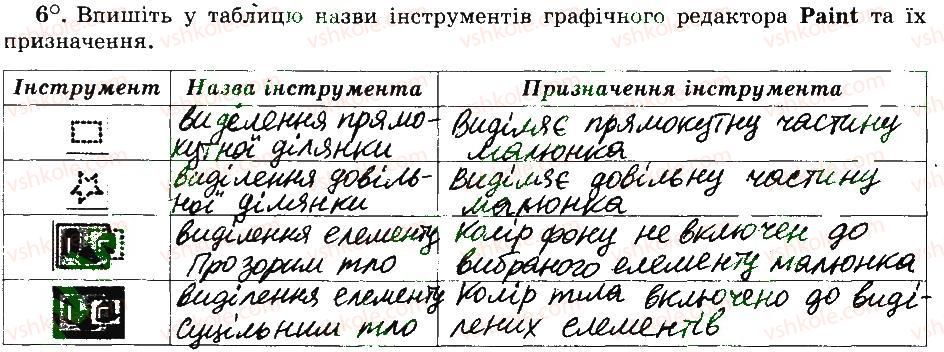 6°. Впишіть у таблицю назви інструментів графічного редактора Paint та їх
призначення.
Інструмент Назва інструмента Призначення інструмента
виделення прямо-
кутної ділянки
Виділяє прямокутну частину
малюнка
виділення довіль-
ної ділянки
Виділяє довільну частину
малюнка
виділення елементу
Прозорим тло
Колір фону не включен до
вибраного елементу малюнка
виділення елементу
суцільним тло
Колір тла включено до виді-
лених елементів